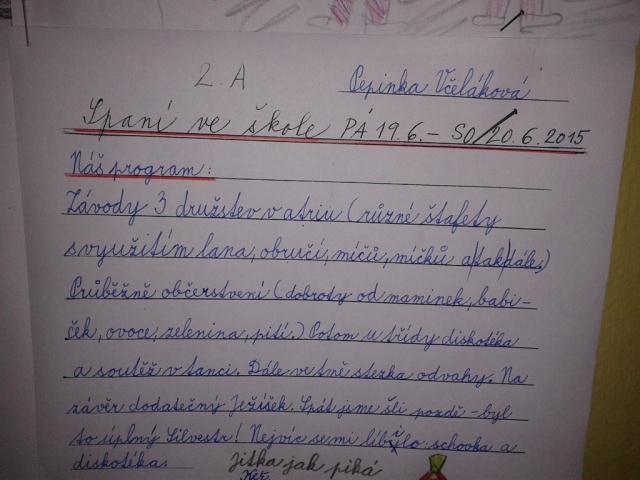 2. A Pepinka Včeláková
Spaní ve škole PÁ 19.6. - SO 20.6.2015
Náš program:
Závody 3 družstev v atriu (různé štafety
s využitím lana, obručí, míčů, míčků a tak dále.)
Průběžně občerstvení (dobroty od maminek, babi-
ček, ovoce, zelenina, pití.) Potom u třídy diskotéka
a soutěž v tanci. Dále ve tmě stezka odvahy. Na
závěr dodatečný Ježíšek. Spát jsme šli pozdě - byl
to úplný Silvestr! Nejvíc se mi líbilo: schovka a
diskotéka. Jitka jak piká